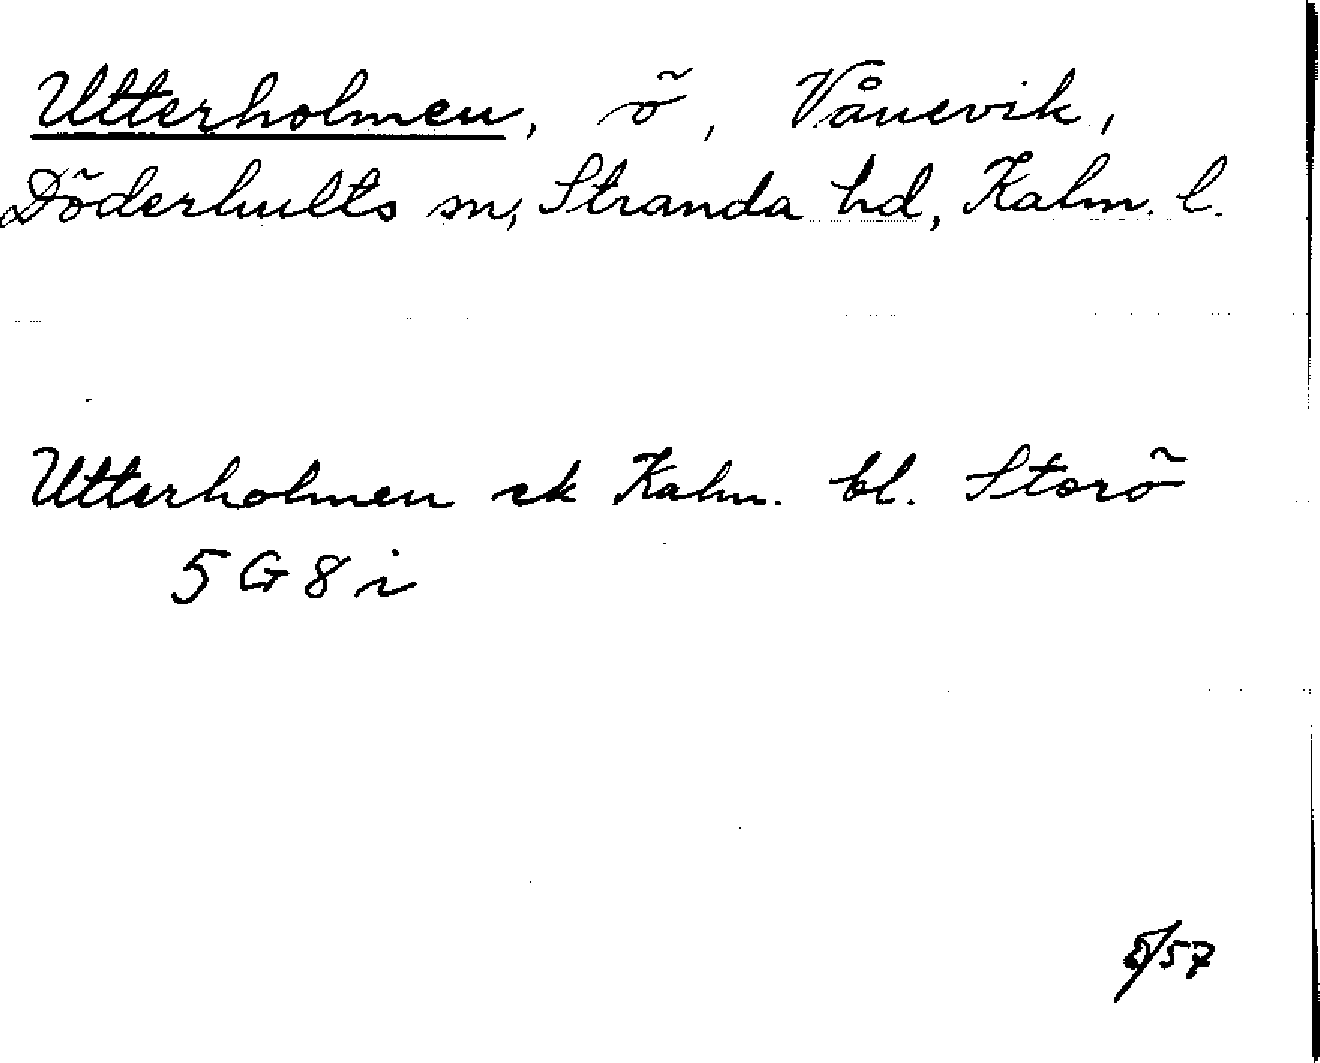 Utterholmen, ö, Vånevik,
Döderhults sn, Stranda hd, Kalm. l.
Utterholmen ek Kalm. bl. Storö
5 G 8 i
/57